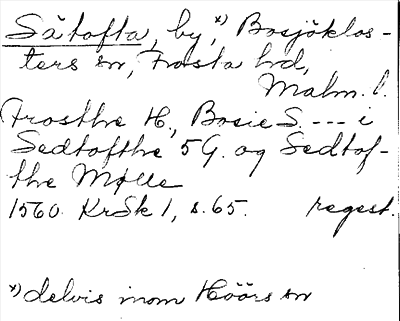 Sätofta, by,*) Bosjöklos-
ters sn, Frosta hd,
Malm. l.
Frosthe H, Bosie S. --- i
Sedtofthe 5 G. og Sedtof-
the Mølle
1560 KrSk 1, s. 65. regest.
*) delvis inom Höörs sn